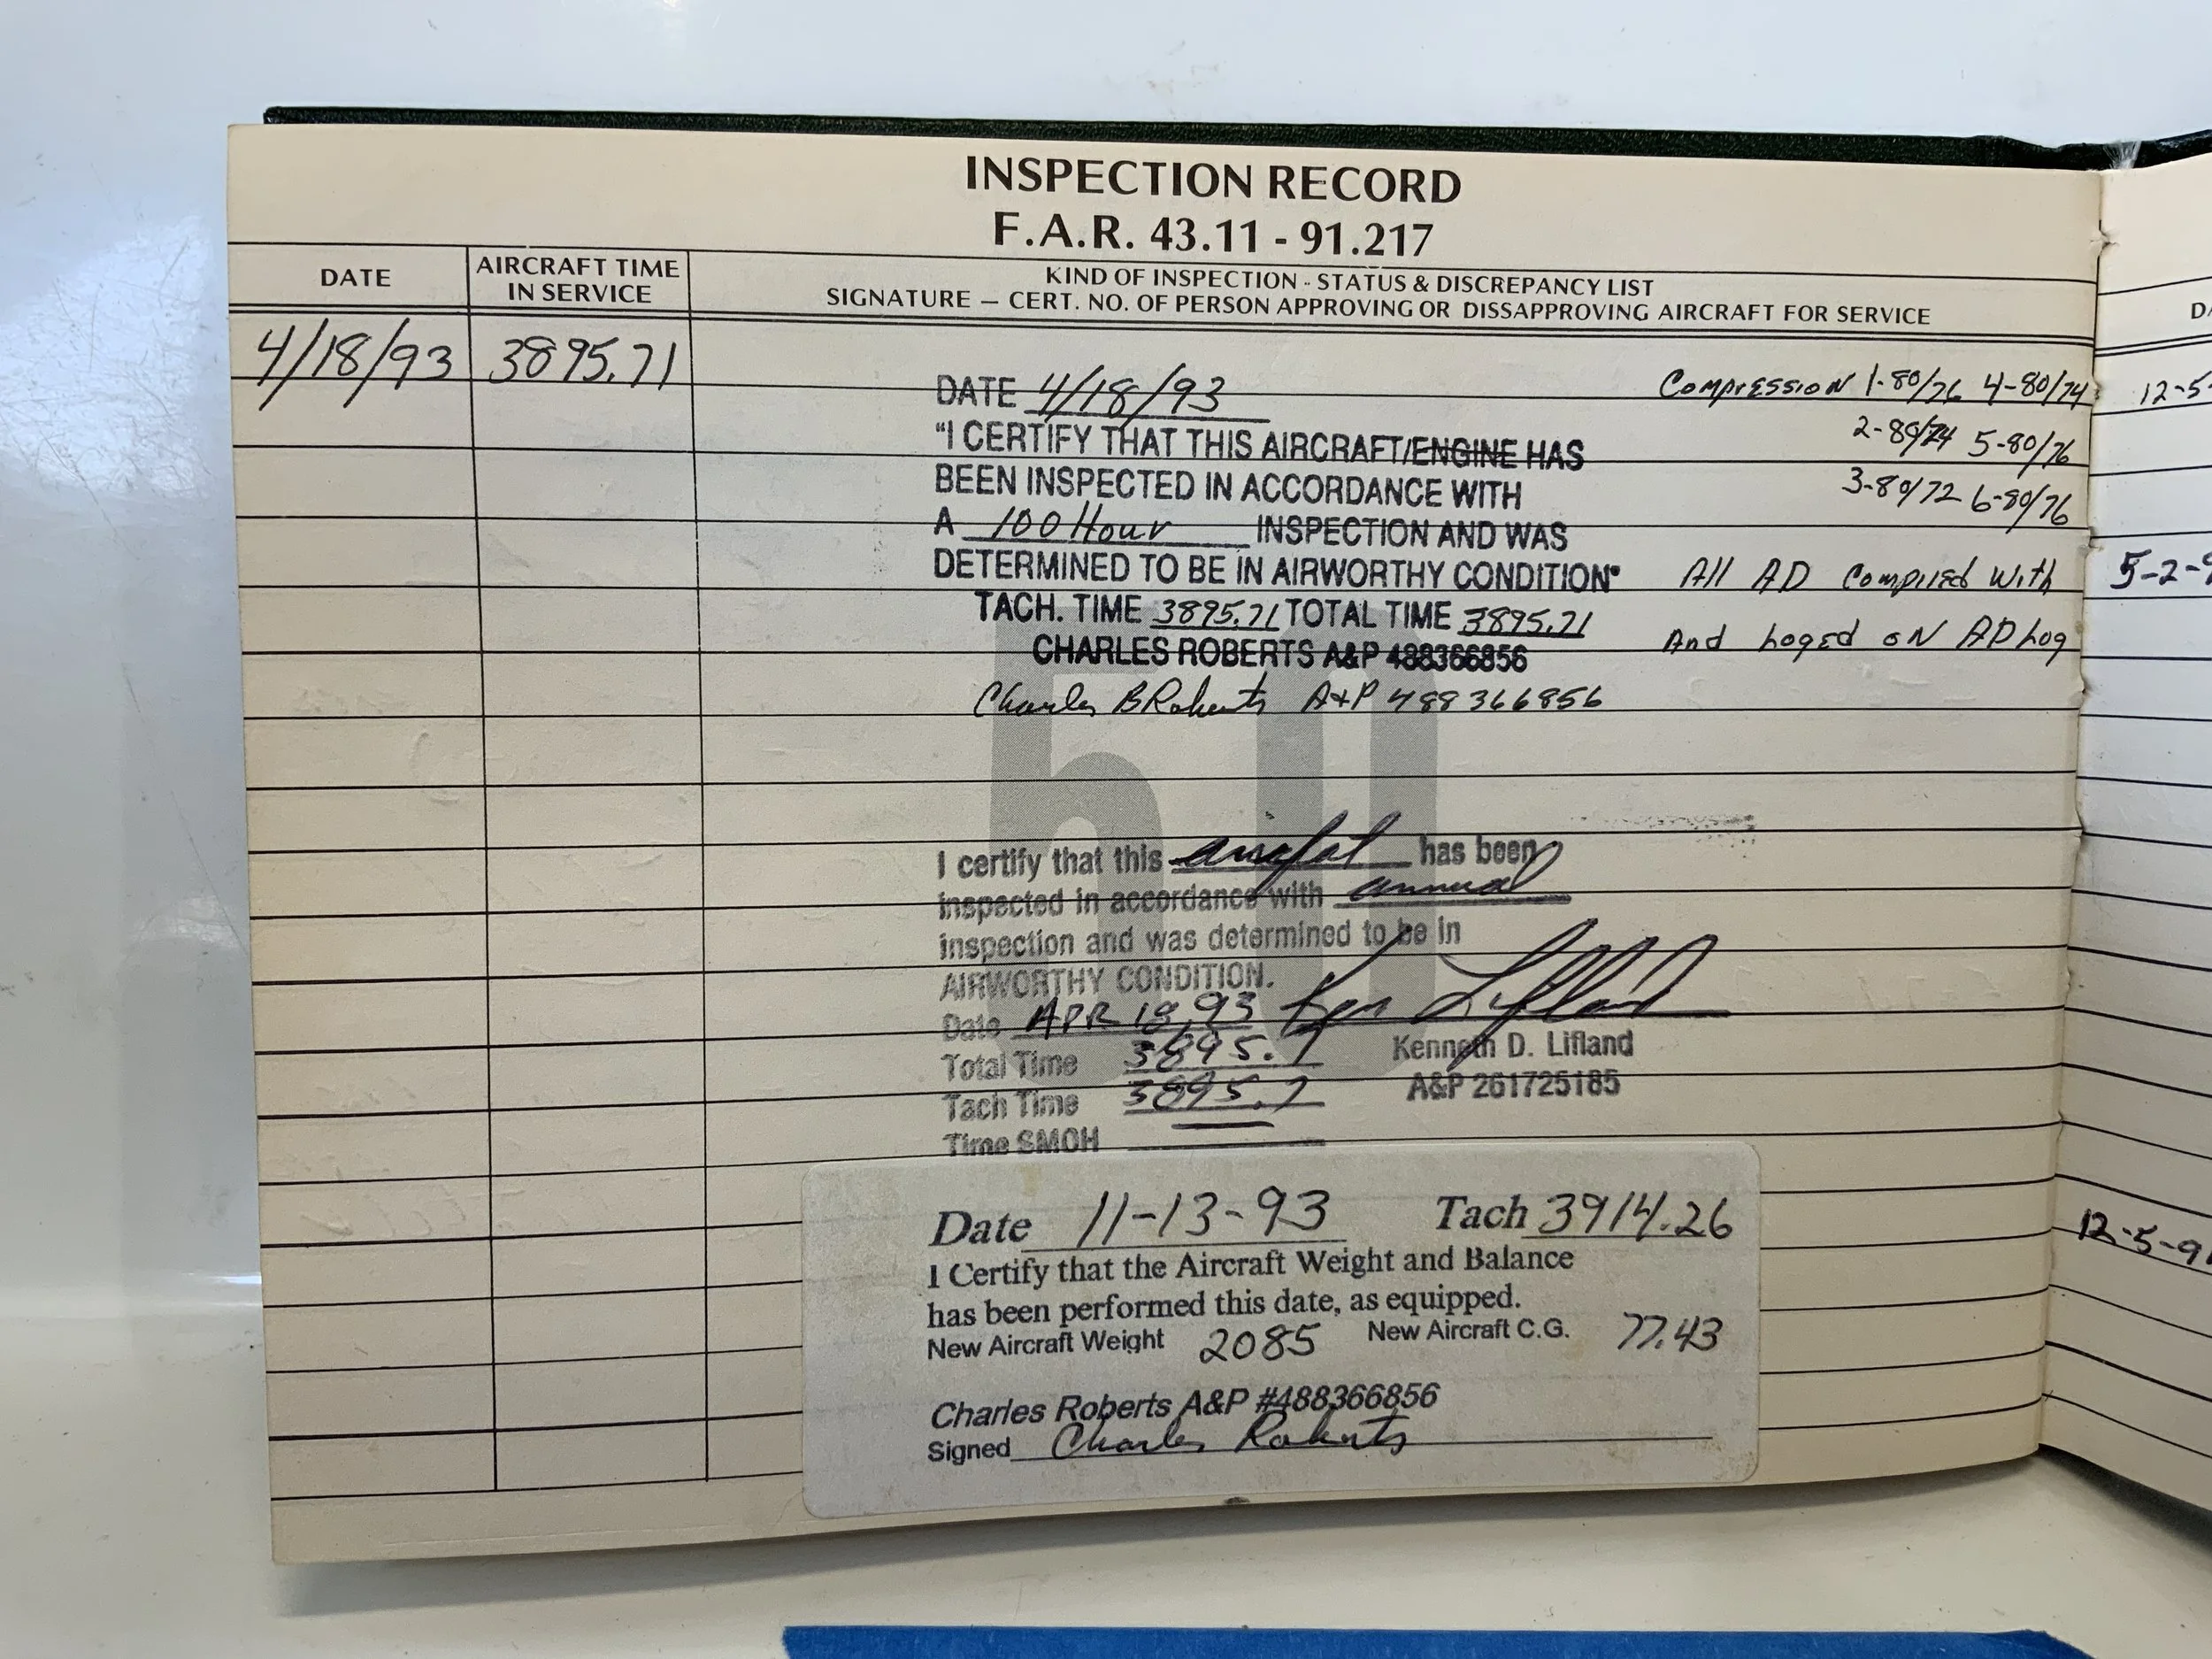 INSPECTION RECORD
F.A.R. 43.11 - 91.217
DATE
AIRCRAFT TIME
IN SERVICE
KIND OF INSPECTION - STATUS & DISCREPANCY LIST
SIGNATURE — CERT. NO. OF PERSON APPROVING OR DISSAPPROVING AIRCRAFT FOR SERVICE
4/18/93 3895.71
DATE 4/18/93
"I CERTIFY THAT THIS AIRCRAFT/ENGINE HAS
BEEN INSPECTED IN ACCORDANCE WITH
A 100 Hour INSPECTION AND WAS
DETERMINED TO BE IN AIRWORTHY CONDITION"
TACH. TIME 3895.71 TOTAL TIME 3895.71
CHARLES ROBERTS A&P 488366856
Charles B Roberts A+P 488366856
Compression 1-80/76 4-80/74
2-80/74 5-80/76
3-80/72 6-80/76
All AD Complied With
And Loged on AD Log
50
I certify that this aircraft has been
inspected in accordance with annual
inspection and was determined to be in
AIRWORTHY CONDITION.
Date APR 18, 93 Ken Lifland
Total Time 3895.7
Kenneth D. Lifland
Tach Time 3895.7
A&P 261725185
Time SMOH
Date 11-13-93 Tach 3914.26
I Certify that the Aircraft Weight and Balance
has been performed this date, as equipped.
New Aircraft Weight 2085 New Aircraft C.G. 77.43
Charles Roberts A&P #488366856
Signed Charles Roberts
12-5-
5-2-9
12-5-9